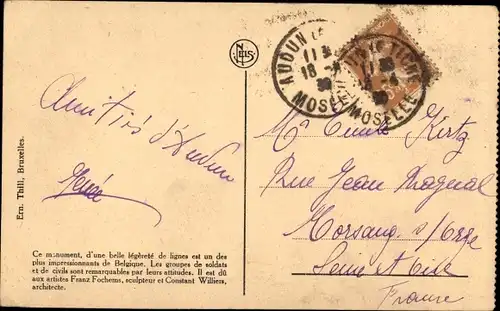 Ern. Thill, Bruxelles.
NELS
Amitiés d'Audun
Renée
Ce monument, d'une belle légèreté de lignes est un des
plus impressionnants de Belgique. Les groupes de soldats
et de civils sont remarquables par leurs attitudes. Il est dû
aux artistes Franz Fochems, sculpteur et Constant Williers,
architecte.
AUDUN LE TICHE
MOSELLE
Kurtz
Rue Jean
Morsang s/Orge
Seine et Oise
France